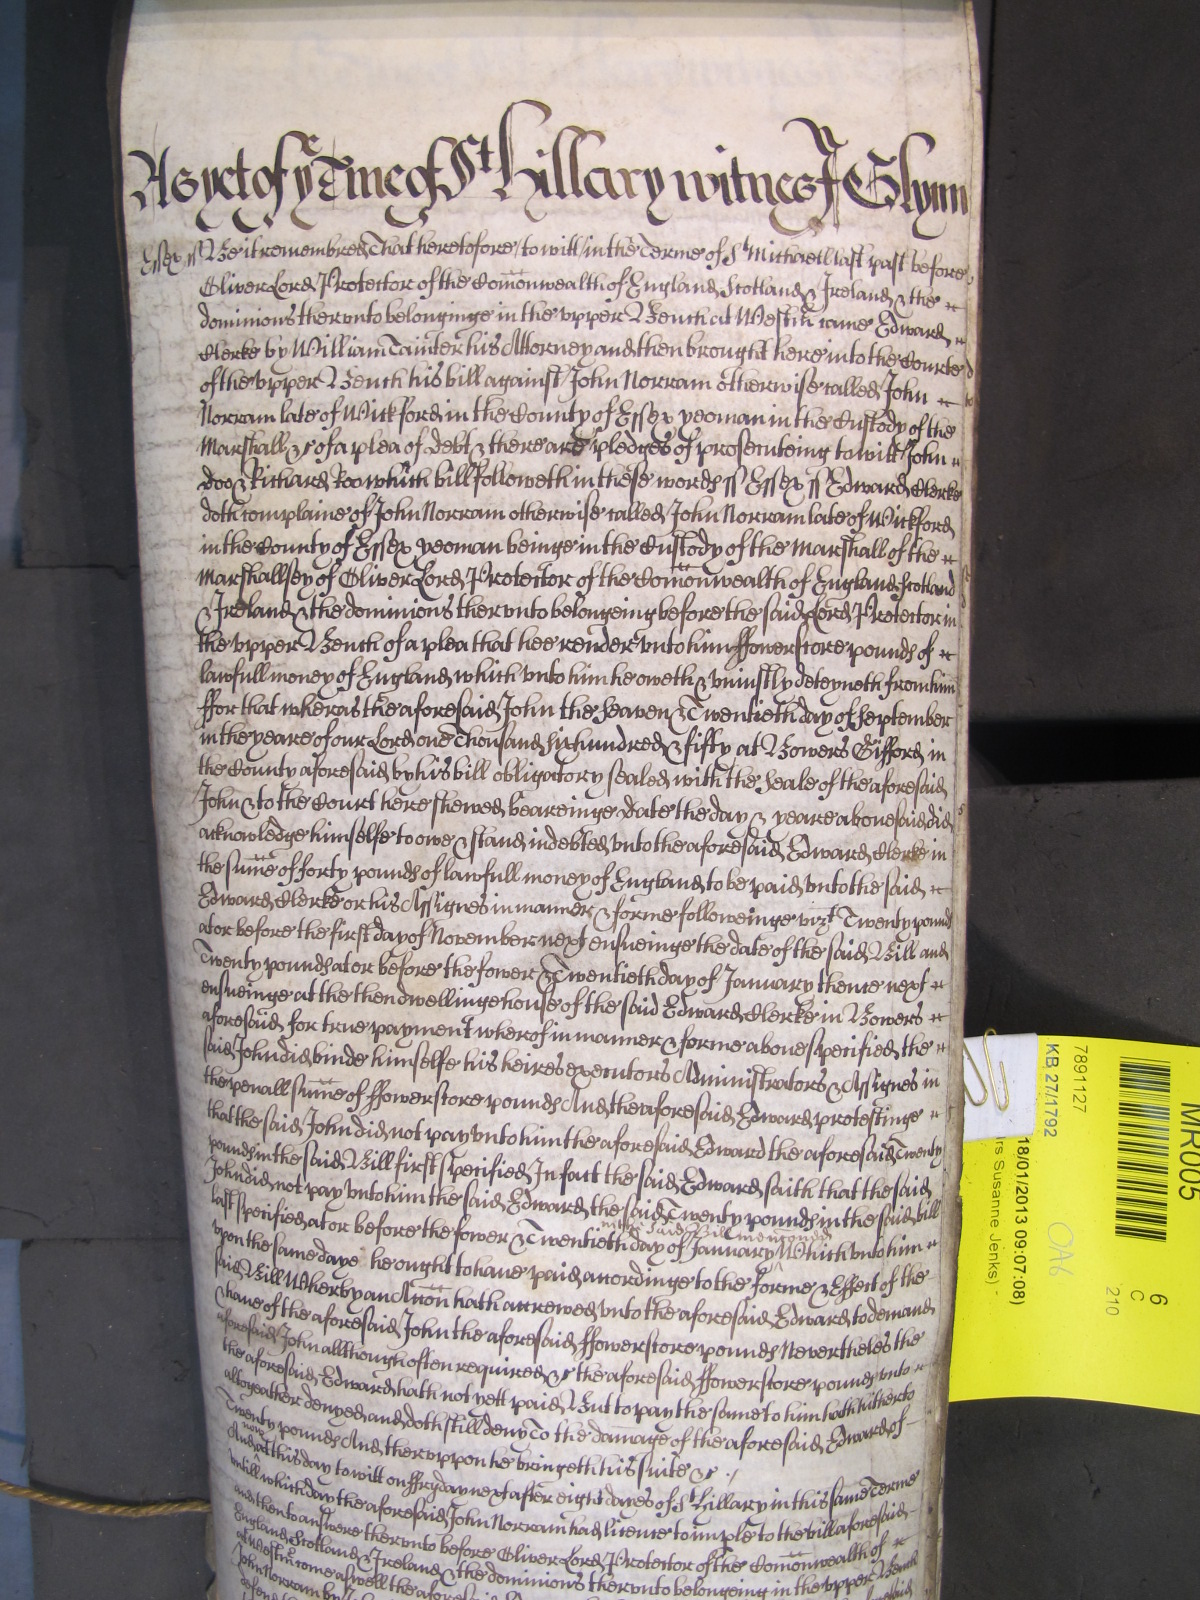 As yet of ye Terme of St Hillary witnes J Glynn
Essex ss Be it remembred That heretofore to witt in the Terme of St Michaell last past before
Oliver Lord Protector of the Comonwealth of England Scotland & Ireland & the
dominions therunto belonginge in the upper Bench at Westm came Edward
Clerke by William Tainter his Attorney and then brought here into the Courte
of the upper Bench his bill against John Norram otherwise called John
Norram late of Wickford in the County of Essex yeoman in the Custody of the
Marshall &c of a plea of debt & there are pledges of prosecuteing to witt John
doo & Richard Roo which bill followeth in these words ss Essex ss Edward Clerke
doth complaine of John Norram otherwise called John Norram late of Wickford
in the County of Essex yeoman beinge in the Custody of the Marshall of the
Marshallsey of Oliver Lord Protector of the Comonwealth of England Scotland
& Ireland & the dominions therunto belongeing before the said Lord Protector in
the upper Bench of a plea that hee render unto him ffowerscore pounds of
lawfull money of England which unto him he oweth & uniustly deteyneth from him
ffor that wheras the aforesaid John the Seaven & Twentieth day of September
in the yeare of our Lord one Thousand six hundred & fifty at Bowers Gifford in
the County aforesaid by his bill obligatory sealed with the Seale of the aforesaid
John & to the Court here shewed beareinge date the day & yeare abovesaid did
acknowledge himselfe to owe & stand indebted unto the aforesaid Edward Clerke in
the sume of forty pounds of lawfull money of England to be paid unto the said
Edward Clerke or his Assignes in manner & forme followeinge vizt Twenty pound
at or before the first day of November next ensueinge the date of the said Bill and
Twenty pounds at or before the fower & Twentieth day of January thence next
ensueinge at the then dwellinge house of the said Edward Clerke in Bowers
aforesaid for true payment wherof in manner & forme above specified the
said John did binde himselfe his heires executors Administrators & Assignes in
the penall sume of ffowerscore pounds And the aforesaid Edward protestinge
that the said John did not pay unto him the aforesaid Edward the aforesaid Twenty
pounds in the said Bill first specified In fact the said Edward saith that the said
John did not pay unto him the said Edward the said Twenty pounds in the said bill
last specified at or before the fower & Twentieth day of January in the said Bill menconed Which unto him
upon the same daye he ought to have paid accordinge to the forme & Effect of the
said Bill Wherby an Accon hath accrewed unto the aforesaid Edward to demand
& have of the aforesaid John the aforesaid ffowerscore pounds Nevertheles the
aforesaid John allthough often required &c the aforesaid ffowerscore pounds unto
the aforesaid Edward hath not yett paid But to pay the same to him hath hitherto
altogeather denyed and doth still deny To the damage of the aforesaid Edward of
Twenty pounds And therupon he bringeth his suite &c
And now at this day to witt on ffryday next after eight dayes of St Hillary in this same Terme
untill which day the aforesaid John Norram had licence to imple to the bill aforesaid
and then to answere therunto before Oliver Lord Protector of the Comonwealth of
England Scotland & Ireland & the dominions therunto belongeing in the upper Bench
at Westm come aswell the aforesaid
John Norram by
defend
MR005
6
C
210
7891127
KB 27/1792
18/01/2013 09:07:08)
rs Susanne Jenks) -
OA6